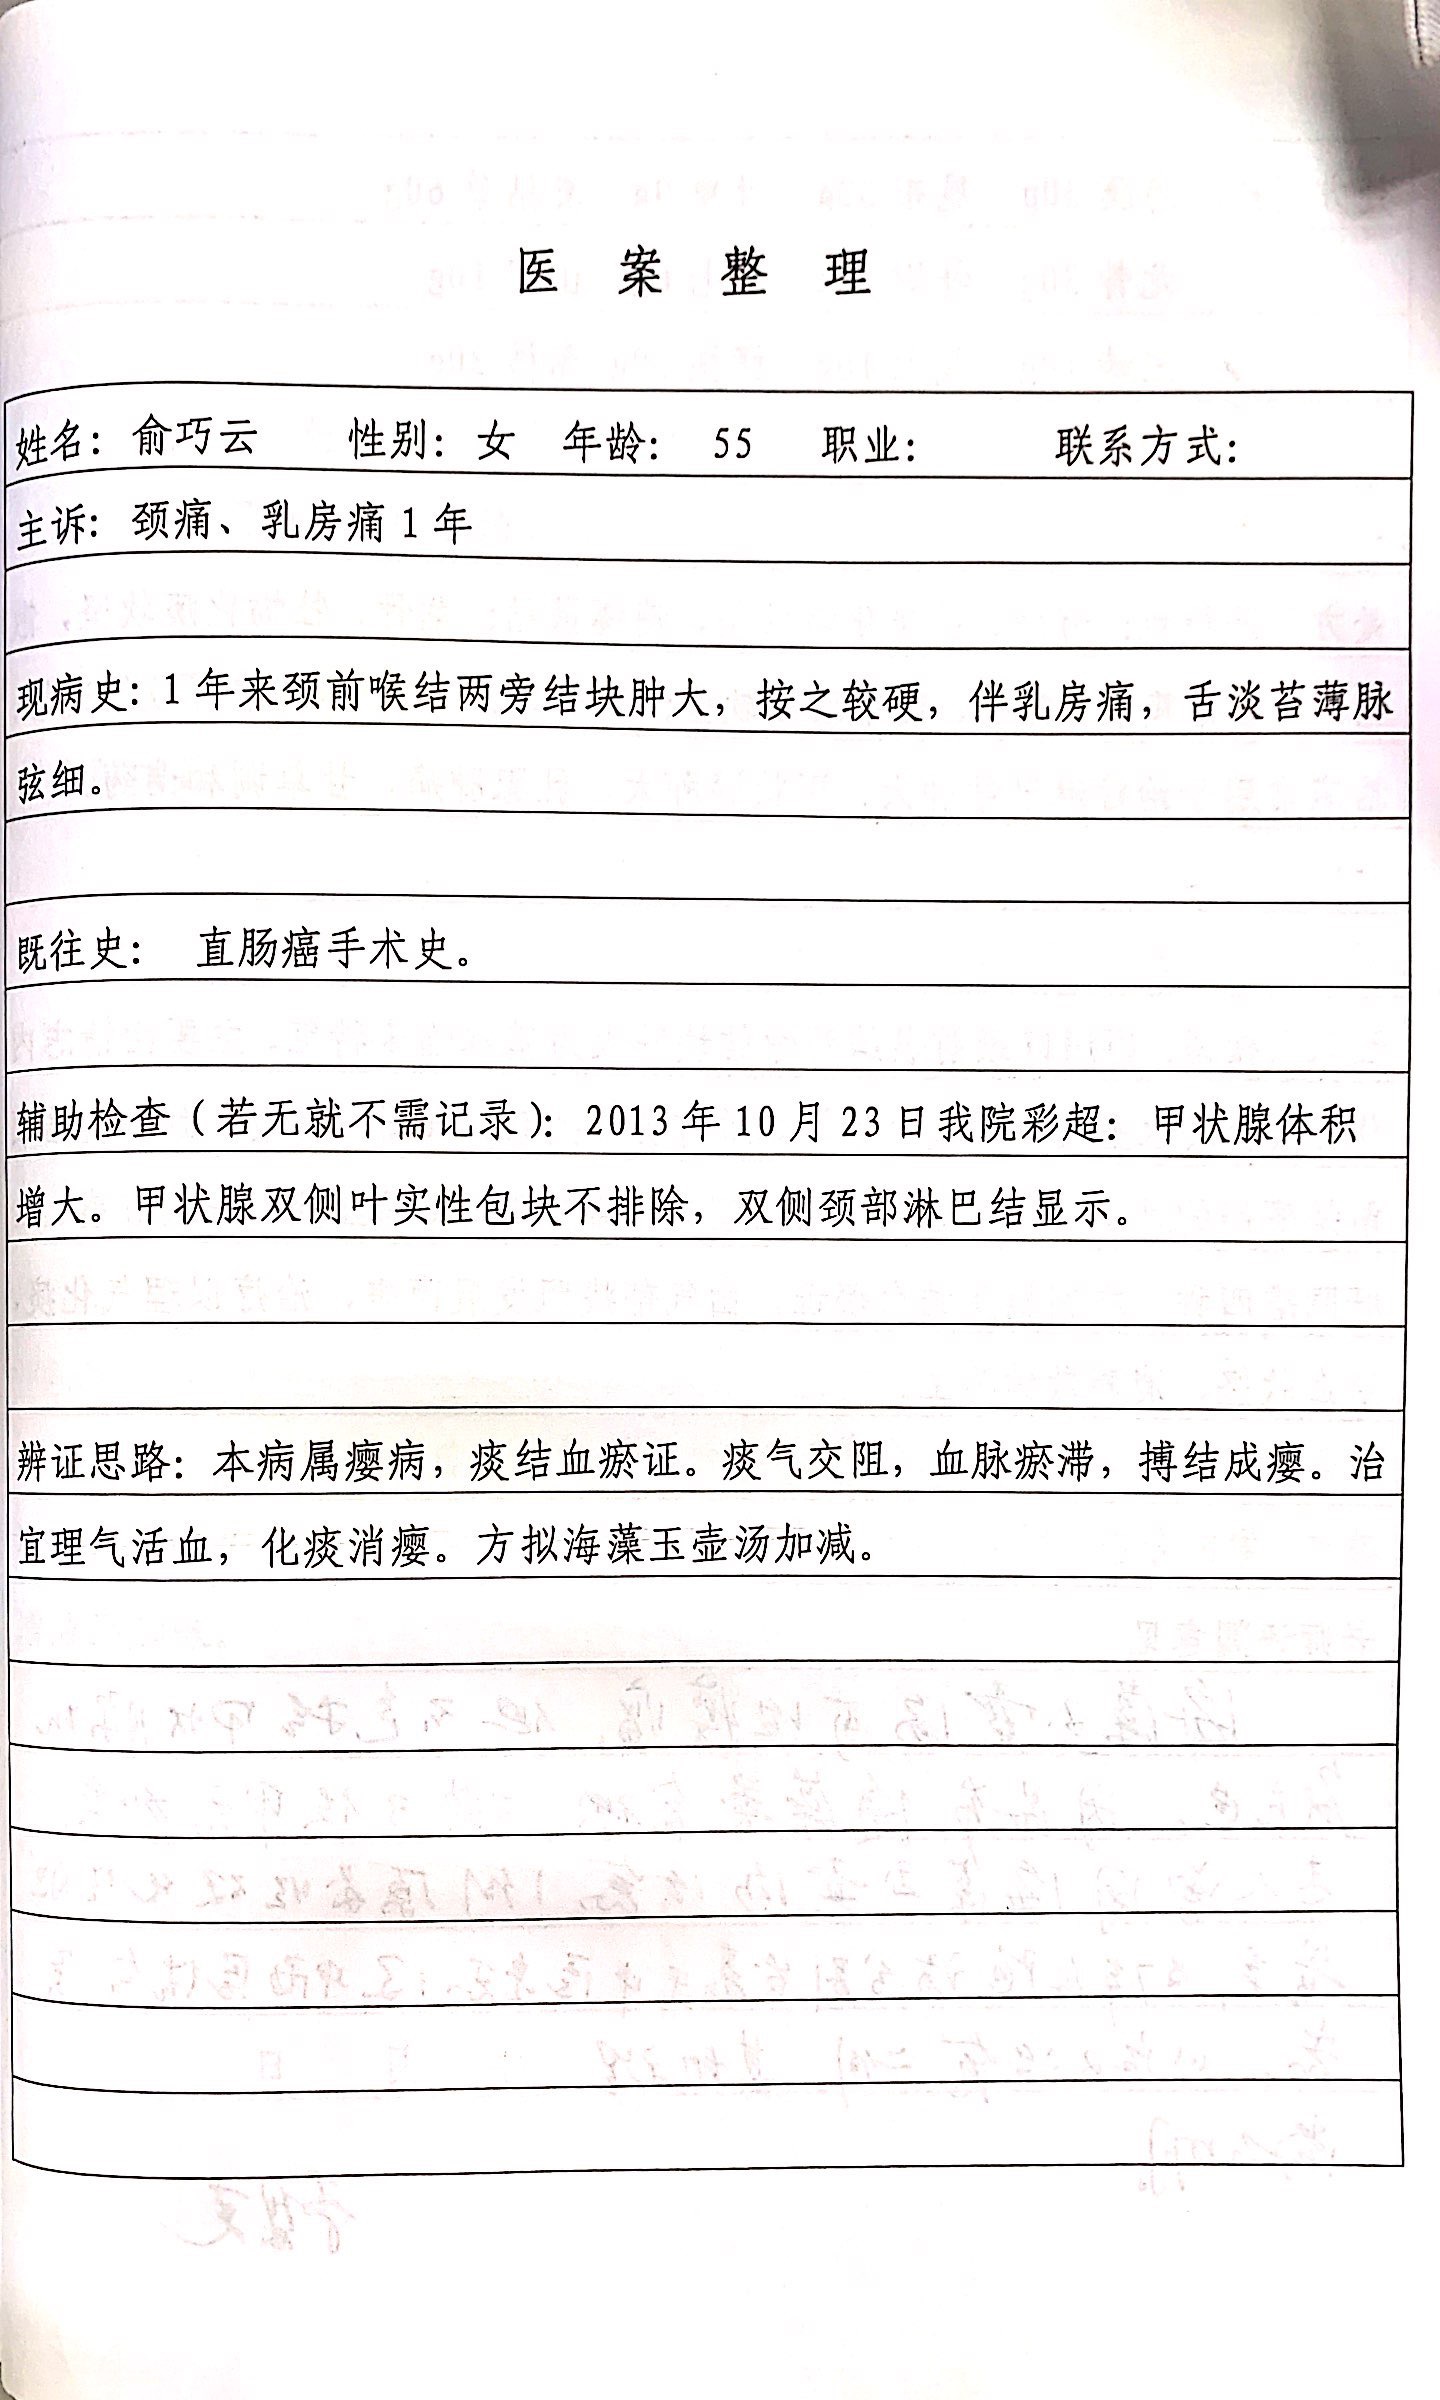 医 案 整 理
姓名：俞巧云 性别：女 年龄： 55 职业： 联系方式：
主诉：颈痛、乳房痛1年
现病史：1年来颈前喉结两旁结块肿大，按之较硬，伴乳房痛，舌淡苔薄脉
弦细。
既往史： 直肠癌手术史。
辅助检查（若无就不需记录）：2013年10月23日我院彩超：甲状腺体积
增大。甲状腺双侧叶实性包块不排除，双侧颈部淋巴结显示。
辨证思路：本病属瘿病，痰结血瘀证。痰气交阻，血脉瘀滞，搏结成瘿。治
宜理气活血，化痰消瘿。方拟海藻玉壶汤加减。